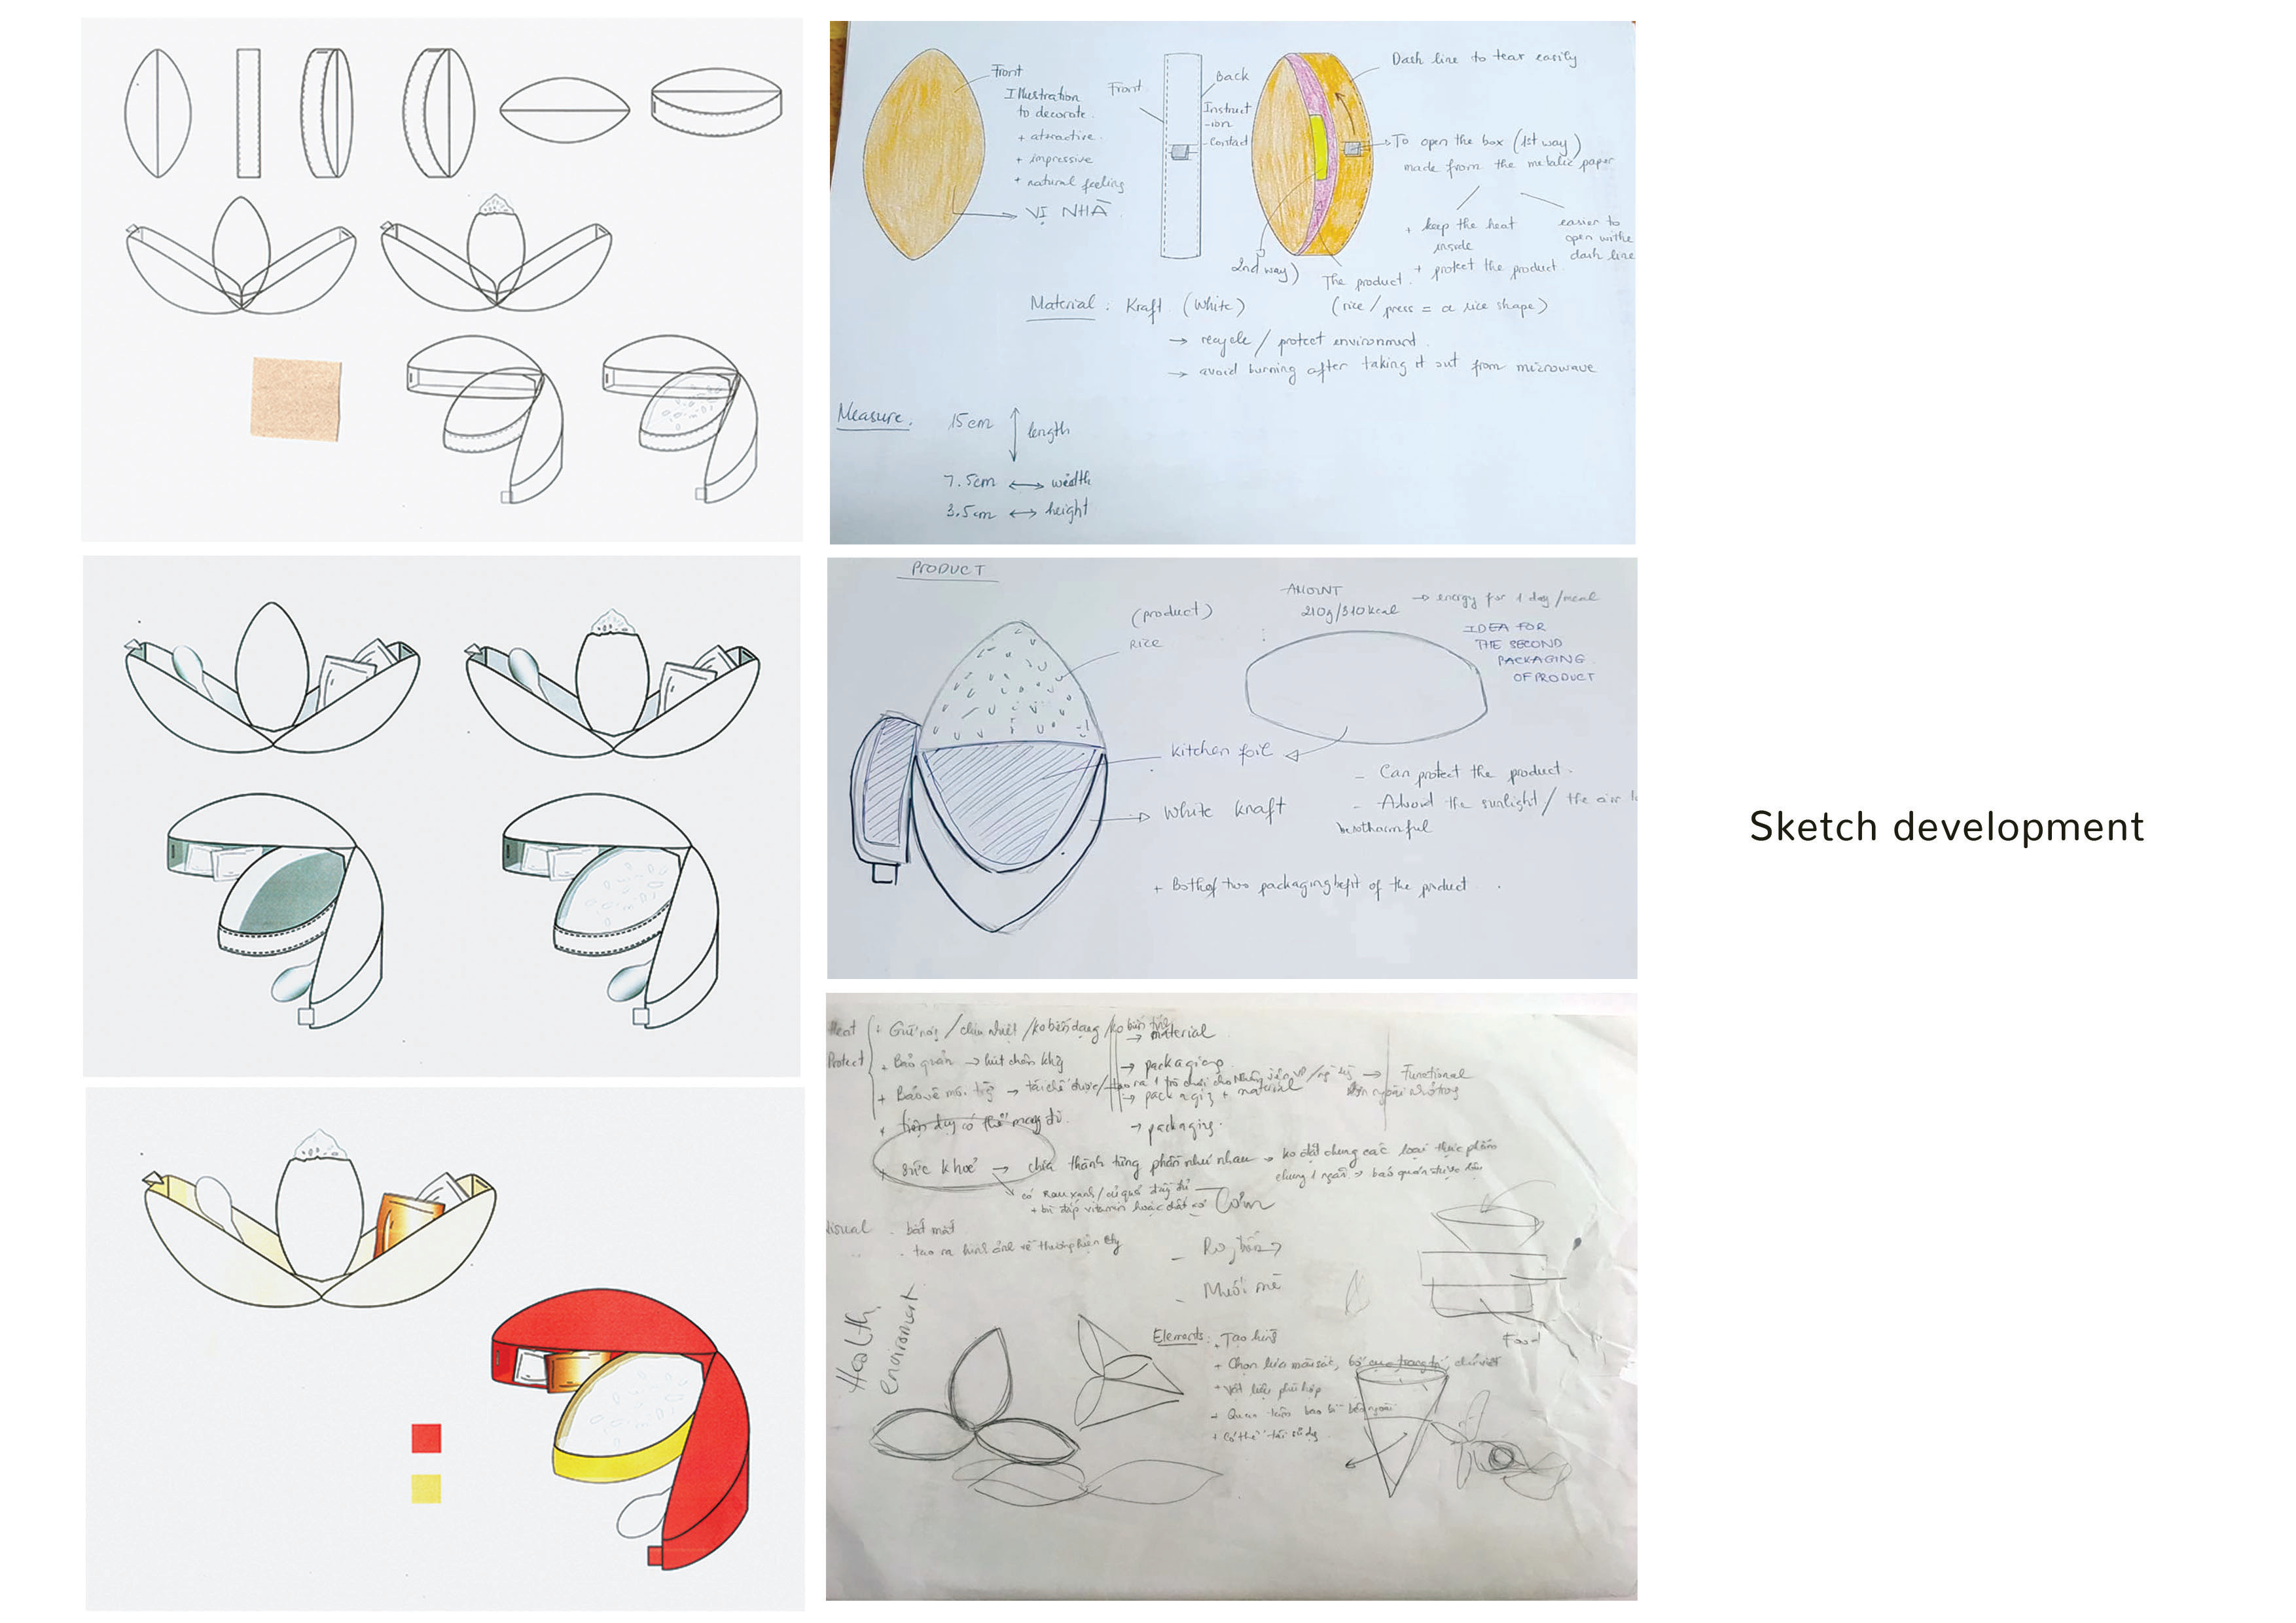 Front
Illustration
to decorate
+ attractive
+ impressive
+ natural feeling
VỊ NHÀ
Front
Back
Instruct
-ion
- Contact
Dash line to tear easily
To open the box (1st way)
made from the metalic paper
+ keep the heat
inside
+ protect the product
easier to
open withe
dash line
2nd way)
The product.
(rice / press = a rice shape)
Material : Kraft (White)
→ recycle / protect environment.
→ avoid burning after taking it out from microwave
Measure.
15cm ↕ length
7.5cm ↔ width
3.5cm ↔ height
PRODUCT
(product)
RICE
AMOUNT
210g/310kcal → energy for 1 day/meal
IDEA FOR
THE SECOND
PACKAGING
OF PRODUCT
kitchen foil
White Kraft
- Can protect the product.
- Advoid the sunlight / the air
+ Both of two packaging befit of the product.
Sketch development
Heat + Giữ nóng / chịu nhiệt / ko biến dạng / → material
Protect + Bảo quản → hút chân không → packaging
+ Bảo vệ môi trg → tái chế được / tạo ra 1 trò chơi cho → packagig + material → Functional
+ tiện dụng có thể mang đi → packaging.
+ sức khoẻ → chia thành từng phần như nhau → ko đặt chung các loại thực phẩm
chung 1 ngăn → bảo quản được lâu
có rau xanh / củ quả đầy đủ
+ bù đắp vitamin hoặc chất xơ
Cơm
Visual - bắt mắt
- tạo ra hình ảnh về thương hiệu cty
-
- Muối mè
Health
environment
Elements: + Tạo hình
+ Chọn lựa màu sắc, bố cục trang trí, chữ viết
+ Vật liệu phù hợp
+ Quan tâm bao bì bên ngoài
+ Có thể tái sử dg
Food